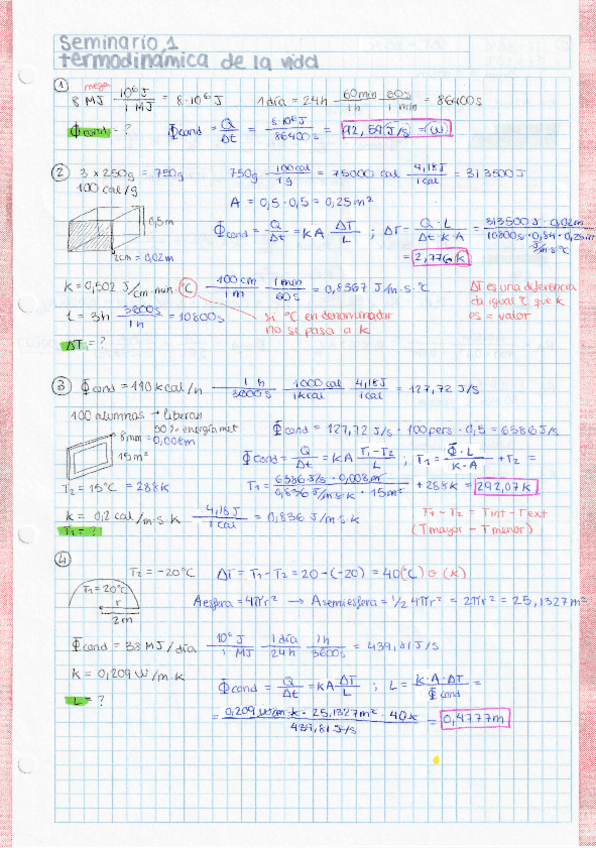 Seminario 1
termodinámica de la vida
① mega
8 MJ 10⁶ J / 1 MJ = 8·10⁶ J 1 día = 24h 60 min / 1 h 60 s / 1 min = 86400 s
Φcond = ? Φcond = Q / Δt = 8·10⁶ J / 86400 s = 92,59 J/s = (W)
② 3 x 250g = 750g 750g 100 cal / 1 g = 75000 cal 4,18 J / 1 cal = 313500 J
100 cal/g
A = 0,5 · 0,5 = 0,25 m²
0,5m
Φcond = Q / Δt = k A ΔT / L ; ΔT = Q · L / Δt · k · A = 313500 J · 0,02m / 10800s · 0,84 · 0,25m² J/m·s·°C
2cm = 0,02m
= 2,776 K
k = 0,502 J/cm·min·°C 100 cm / 1 m 1 min / 60 s = 0,8367 J/m·s·°C
ΔT es una diferencia
da igual °C que K
es = valor
si °C en denominador
no se pasa a K
t = 3h 3600s / 1 h = 10800s
ΔT = ?
③ Φcond = 110 kcal/h 1 h / 3600s 1000 cal / 1 kcal 4,18 J / 1 cal = 127,72 J/s
100 alumnos → liberan
50% energía met
Φcond = 127,72 J/s · 100 pers · 0,5 = 6386 J/s
8mm = 0,008m
15 m²
Φcond = Q / Δt = k A T₁ - T₂ / L ; T₁ = Φ · L / k · A + T₂ =
T₂ = 15°C = 288K
T₁ = 6386 J/s · 0,008m / 0,836 J/m·s·K · 15m² + 288K = 292,07K
k = 0,2 cal/m·s·K 4,18 J / 1 cal = 0,836 J/m·s·K
T₁ - T₂ = Tint - Text
(Tmayor - Tmenor)
T₁ = ?
④
T₂ = -20°C ΔT = T₁ - T₂ = 20 - (-20) = 40 (°C) o (K)
T₁ = 20°C
r
2m
A esfera = 4πr² → A semiesfera = 1/2 4πr² = 2πr² = 25,1327m²
Φcond = 38 MJ/día 10⁶ J / 1 MJ 1 día / 24h 1h / 3600s = 439,81 J/s
k = 0,209 W/m·K
Φcond = Q / Δt = k A ΔT / L ; L = k · A · ΔT / Φcond =
L = ?
= 0,209 W/m·K · 25,1327m² · 40K / 439,81 J/s = 0,4777m